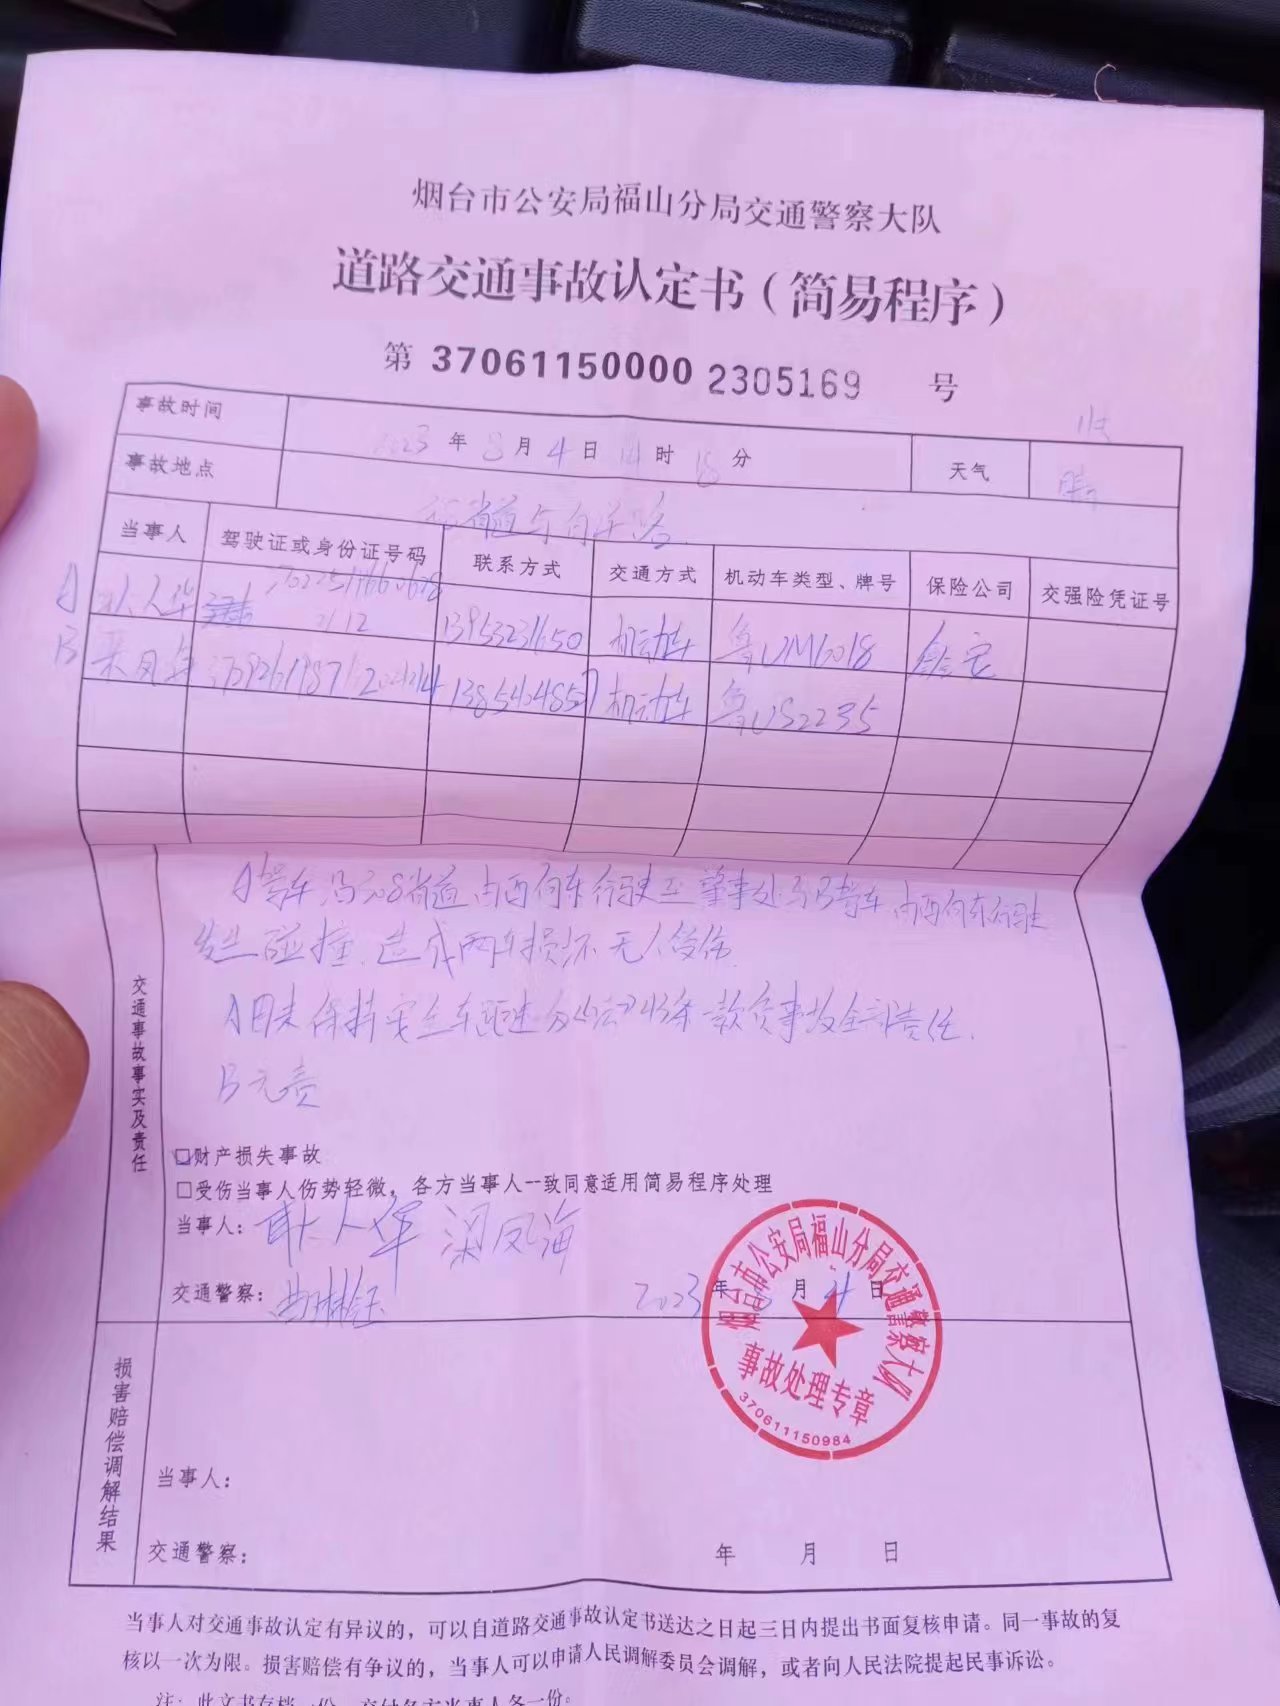 烟台市公安局福山分局交通警察大队
道路交通事故认定书（简易程序）
第 37061150000 2305169 号
事故时间 2023 年 8 月 4 日 时 分 天气 晴
事故地点 省道与
当事人 驾驶证或身份证号码 联系方式 交通方式 机动车类型、牌号 保险公司 交强险凭证号
A 人华 机动车 鲁UM6018
B 机动车 鲁US2235
交通事故事实及责任
A驾车沿 省道由西向东行驶至肇事处与B驾车由西向东行驶
发生碰撞，造成两车损坏无人受伤
A因未保持安全车距 43条一款负事故全部责任.
B无责
□财产损失事故
□受伤当事人伤势轻微，各方当事人一致同意适用简易程序处理
当事人： 人华 梁凤海
交通警察： 2023 年 8 月 4 日
烟台市公安局福山分局交通警察大队
事故处理专章
370611150984
损害赔偿调解结果
当事人：
交通警察： 年 月 日
当事人对交通事故认定有异议的，可以自道路交通事故认定书送达之日起三日内提出书面复核申请。同一事故的复
核以一次为限。损害赔偿有争议的，当事人可以申请人民调解委员会调解，或者向人民法院提起民事诉讼。
注：此文书存档一份，交付各方当事人各一份。